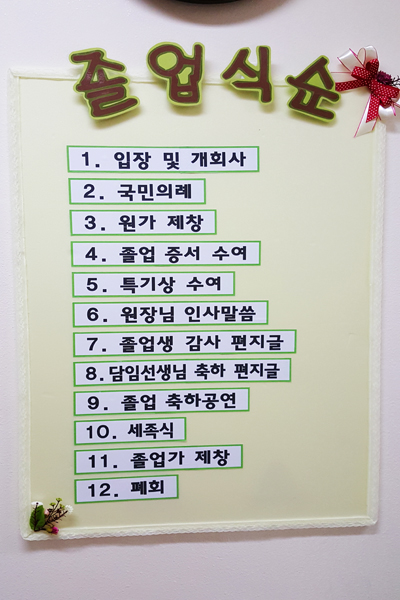 졸업식순
1. 입장 및 개회사
2. 국민의례
3. 원가 제창
4. 졸업 증서 수여
5. 특기상 수여
6. 원장님 인사말씀
7. 졸업생 감사 편지글
8. 담임선생님 축하 편지글
9. 졸업 축하공연
10. 세족식
11. 졸업가 제창
12. 폐회